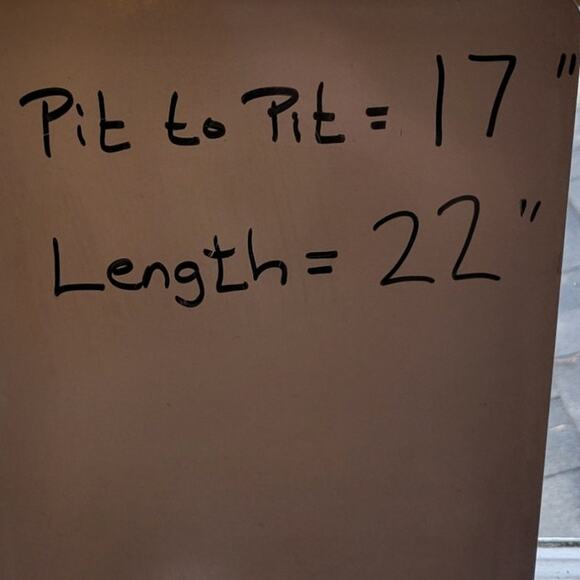 Pit to Pit = 17"
Length = 22"